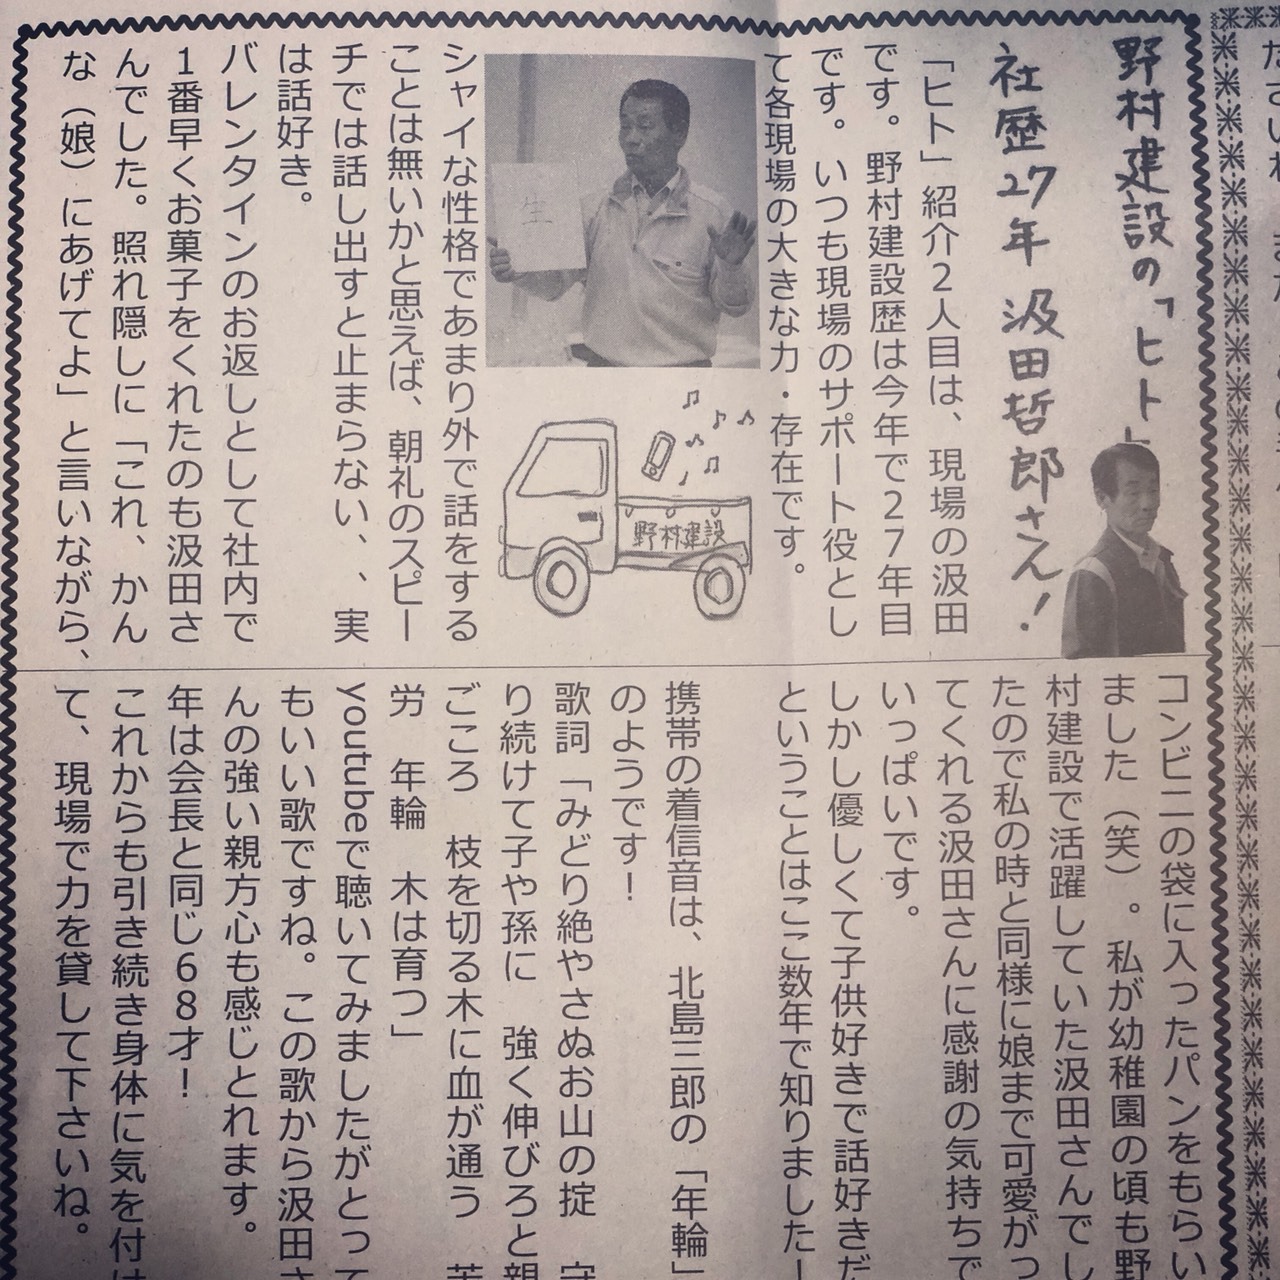 野村建設の「ヒト」
社歴27年 汲田哲郎さん!
「ヒト」紹介2人目は、現場の汲田
です。野村建設歴は今年で27年目
です。いつも現場のサポート役とし
て各現場の大きな力・存在です。
生
野村建設
シャイな性格であまり外で話をする
ことは無いかと思えば、朝礼のスピー
チでは話し出すと止まらない、、実
は話好き。
バレンタインのお返しとして社内で
1番早くお菓子をくれたのも汲田さ
んでした。照れ隠しに「これ、かん
な(娘)にあげてよ」と言いながら、
コンビニの袋に入ったパンをもらい
ました(笑)。私が幼稚園の頃も野
村建設で活躍していた汲田さんでし
たので私の時と同様に娘まで可愛がっ
てくれる汲田さんに感謝の気持ちで
いっぱいです。
しかし優しくて子供好きで話好きだ
ということはここ数年で知りましたー
携帯の着信音は、北島三郎の「年輪」
のようです!
歌詞「みどり絶やさぬお山の掟 守
り続けて子や孫に 強く伸びろと親
ごころ 枝を切る木に血が通う 苦
労 年輪 木は育つ」
youtubeで聴いてみましたがとって
もいい歌ですね。この歌から汲田さ
んの強い親方心も感じとれます。
年は会長と同じ68才!
これからも引き続き身体に気を付け
て、現場で力を貸して下さいね。